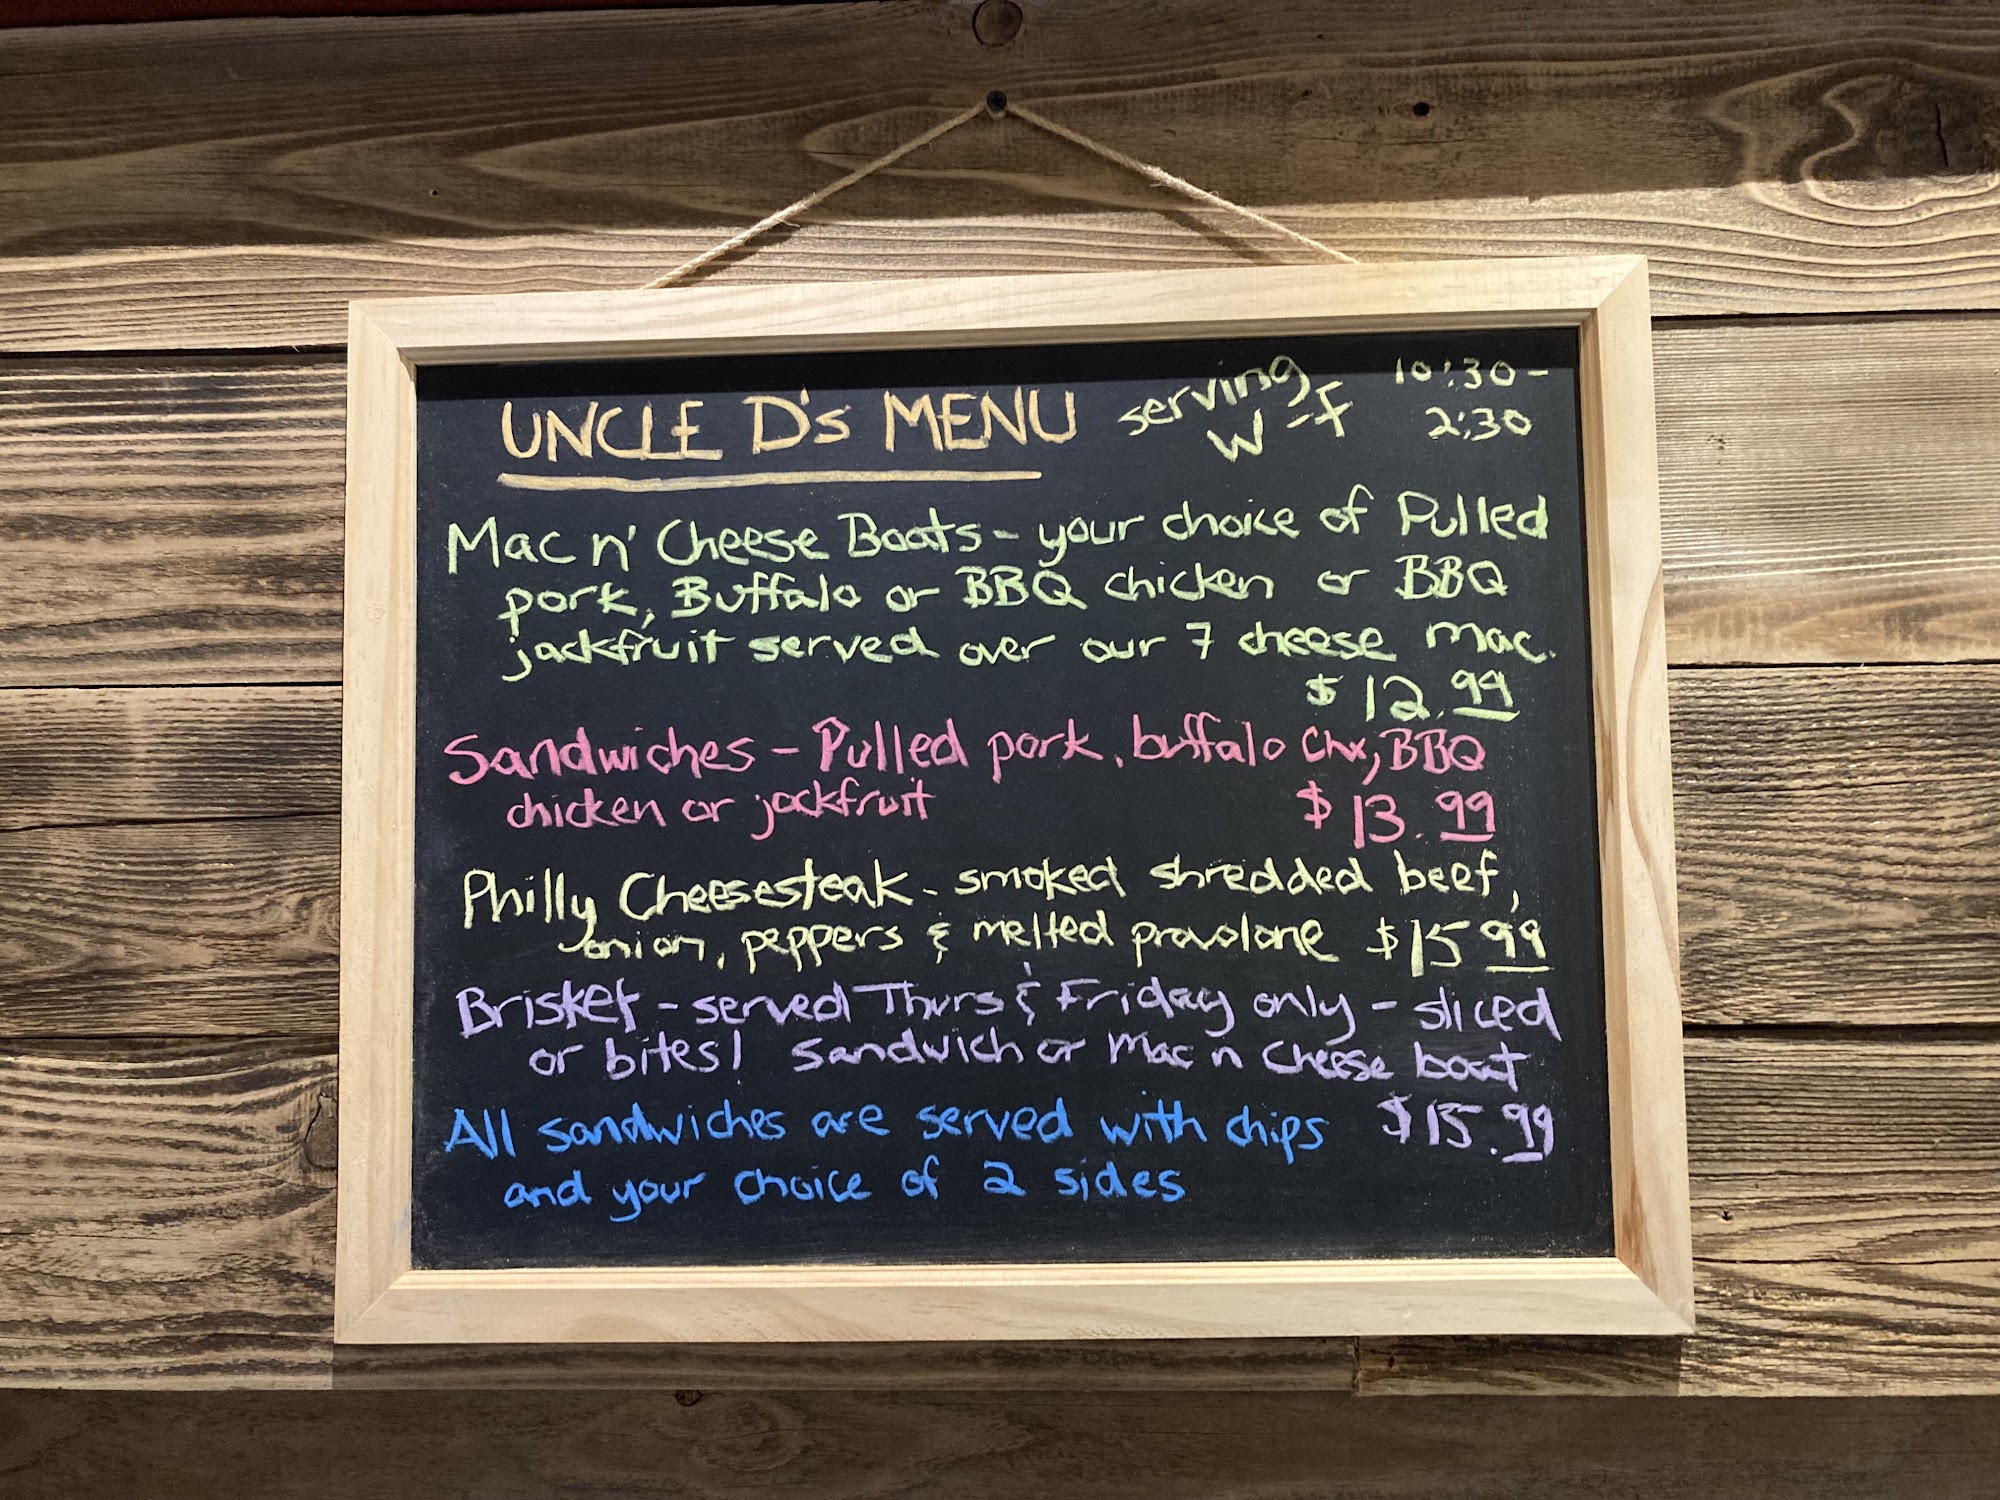 UNCLE D's MENU
serving
W-F
10:30-
2:30
Mac n' Cheese Boats - your choice of Pulled
pork, Buffalo or BBQ chicken or BBQ
jackfruit served over our 7 cheese mac.
$12.99
Sandwiches - Pulled pork, buffalo Chx, BBQ
chicken or jackfruit $13.99
Philly Cheesesteak - smoked shredded beef,
onion, peppers & melted provolone $15.99
Brisket - served Thurs & Friday only - sliced
or bites! Sandwich or Mac n Cheese boat
$15.99
All sandwiches are served with chips
and your choice of 2 sides